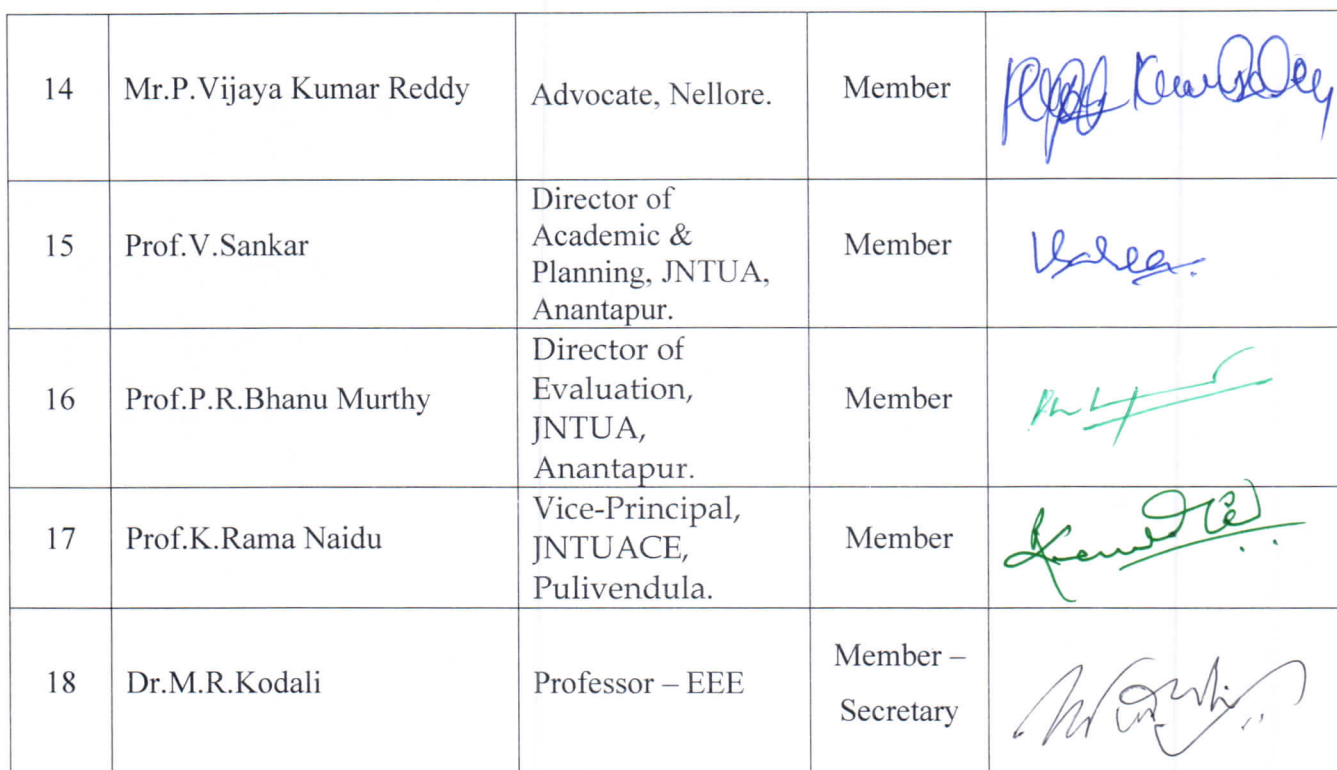 14
Mr.P.Vijaya Kumar Reddy
Advocate, Nellore.
Member
15
Prof.V.Sankar
Director of
Academic &
Planning, JNTUA,
Anantapur.
Member
16
Prof.P.R.Bhanu Murthy
Director of
Evaluation,
JNTUA,
Anantapur.
Member
17
Prof.K.Rama Naidu
Vice-Principal,
JNTUACE,
Pulivendula.
Member
18
Dr.M.R.Kodali
Professor – EEE
Member –
Secretary